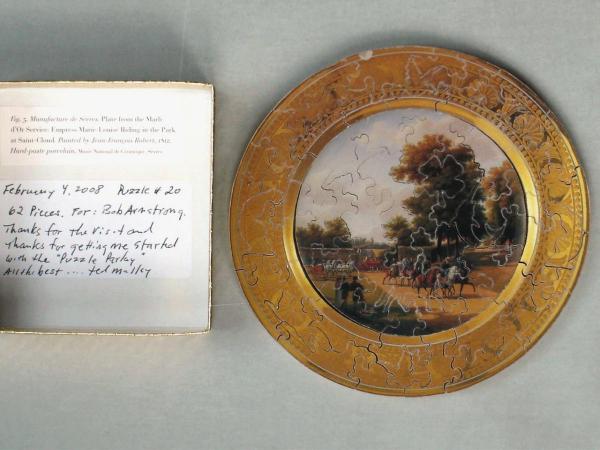 Fig. 5. Manufacture de Sèvres. Plate from the Marli
d'Or Service: Empress Marie-Louise Riding in the Park
at Saint-Cloud. Painted by Jean-François Robert, 1812.
Hard-paste porcelain. Musée National de Céramique, Sèvres
February 4, 2008 Puzzle # 20
62 Pieces. For: Bob Armstrong.
Thanks for the Visit and
Thanks for getting me started
with the "Puzzle Parley"
All the best .... ted malley